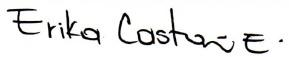 Erika Castan E.